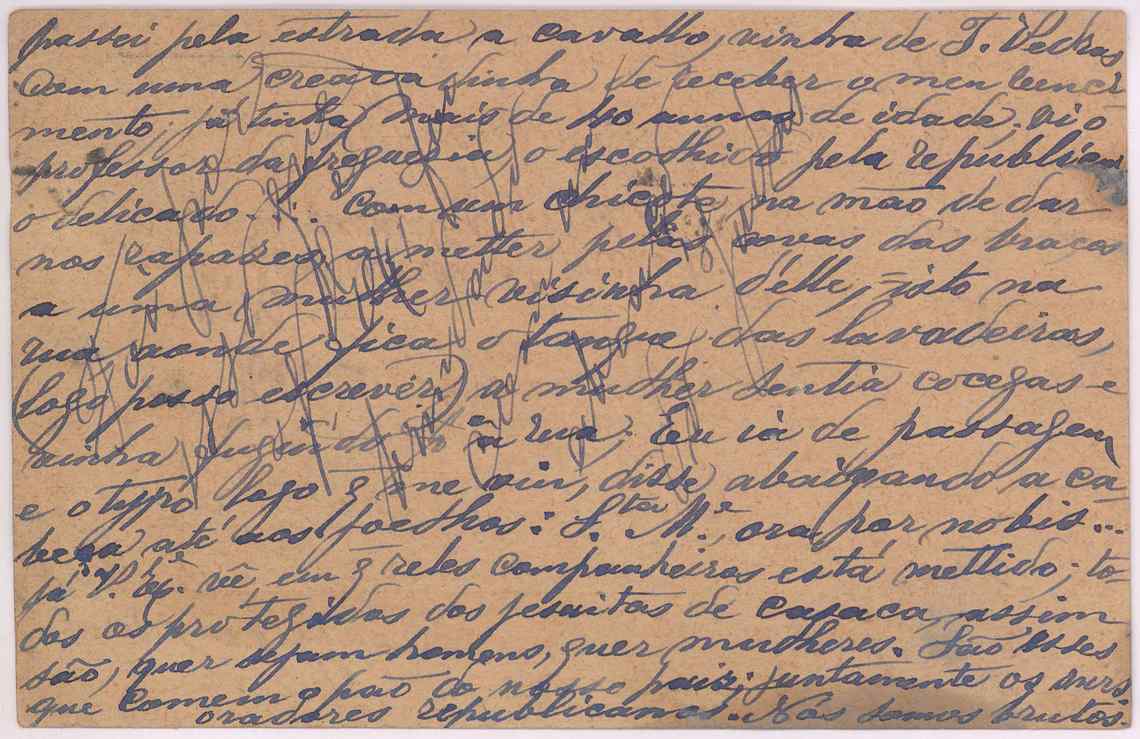 passei pela estrada a cavallo, vinha de T. Vedras
com uma creaca vinha de receber o meu venci
mento; já tinha mais de 40 annos de idade. Vi o
professor da freguezia, o escolhido pela republica
o delicado.... Com um chicote na mão de dar
nos rapazes a metter pelas covas dos braços
a uma mulher visinha d'elle, isto na
rua aonde fica o tanque das lavadeiras,
(logo posso escrevêr) a mulher sentia cocegas e
vinha fugindo pª a rua; Eu ia de passagem
e o typo logo q me viu, disse abaixando a ca-
beça até aos joelhos: S.ta M.ª, ora por nobis...
já V. Exª. vê, em q reles companheiros está mettido; to-
dos os protegidos dos jesuitas de casaca, assim
são, quer sejam homens, quer mulheres. São esses
que comem o pão do nosso paiz; juntamente os
oradores republicanos. Nós somos brutos.